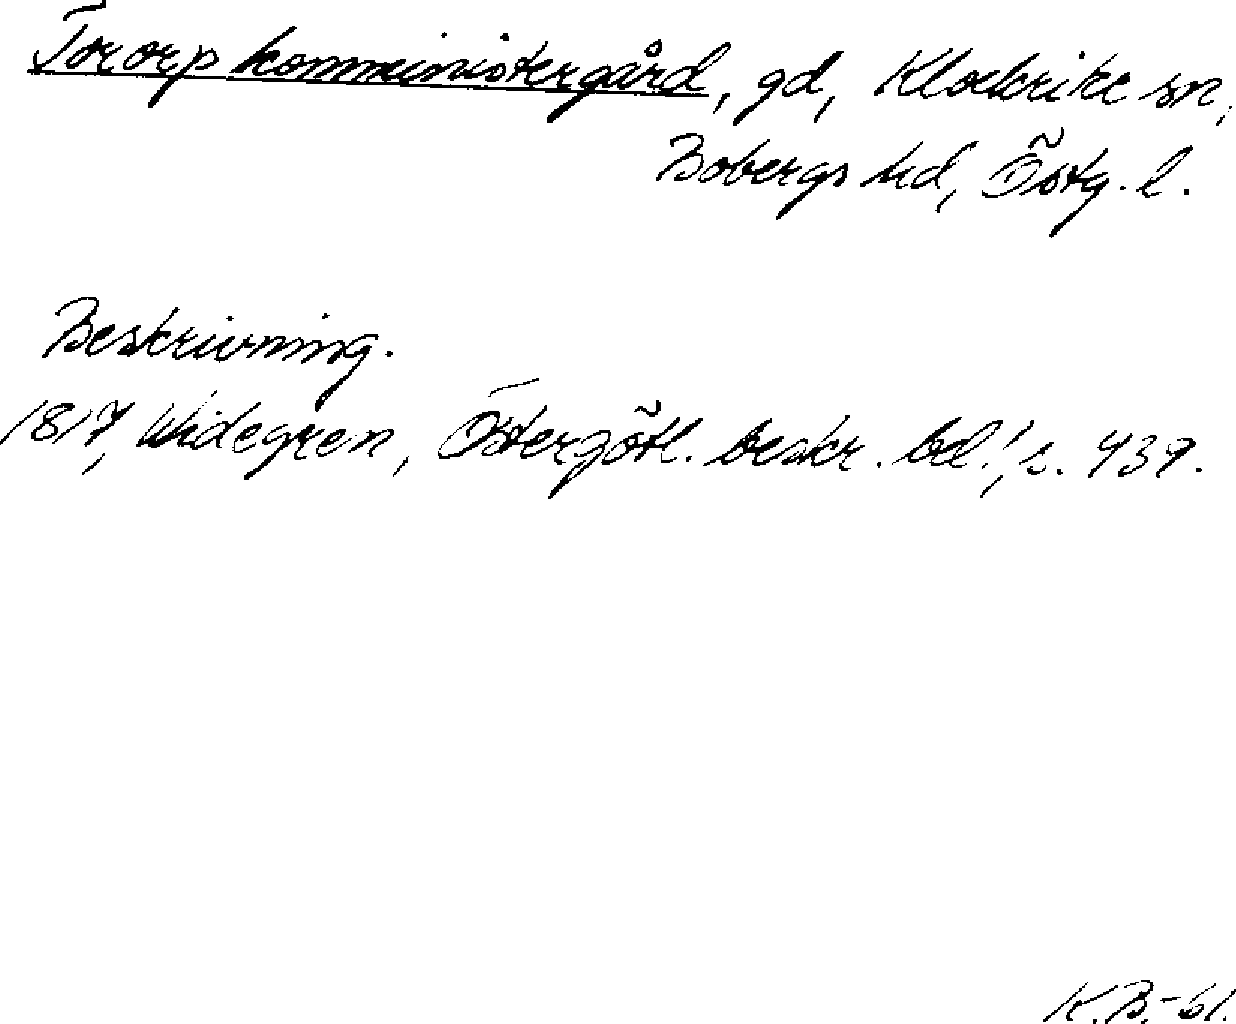 Tororp komministergård, gd, Klockrike sn,
Bobergs hd, Östg. l.
Beskrivning.
1817, Widegren, Östergötl. beskr. bd 1, s. 439.
K.B.-61.